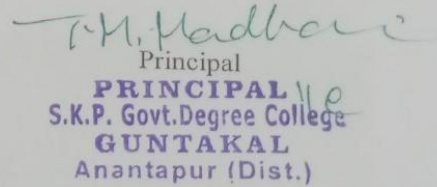 T.M. Madhavi
Principal
PRINCIPAL
S.K.P. Govt.Degree College
GUNTAKAL
Anantapur (Dist.)